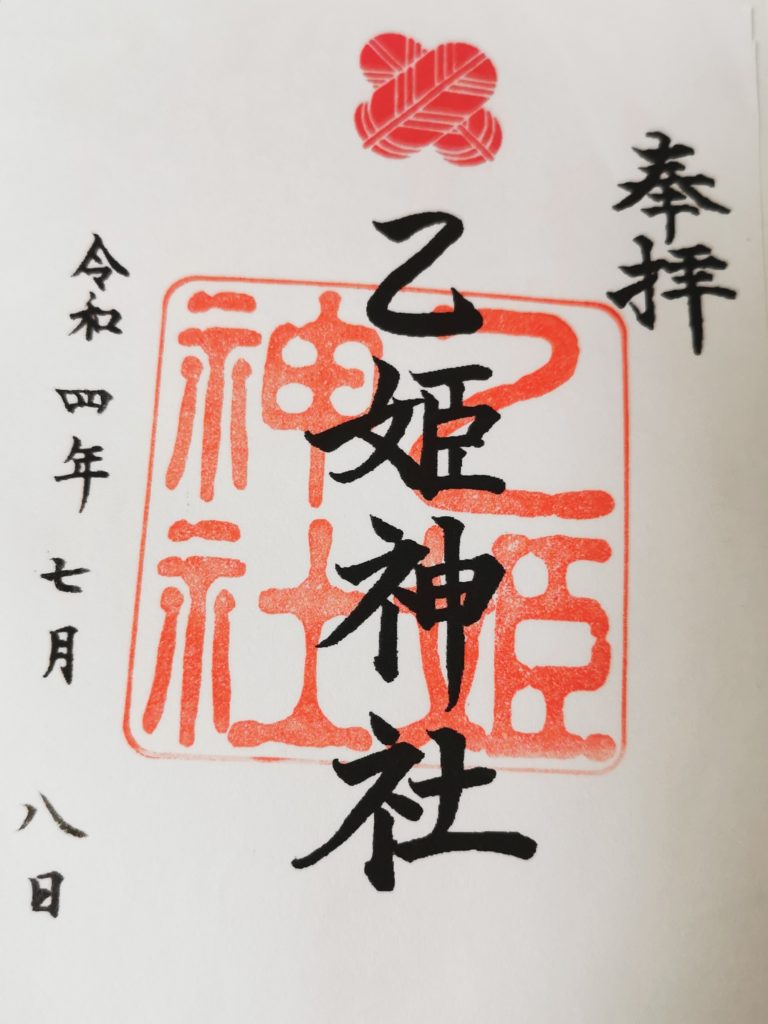 奉拝
乙姫神社
乙姫
神社
令和四年七月八日